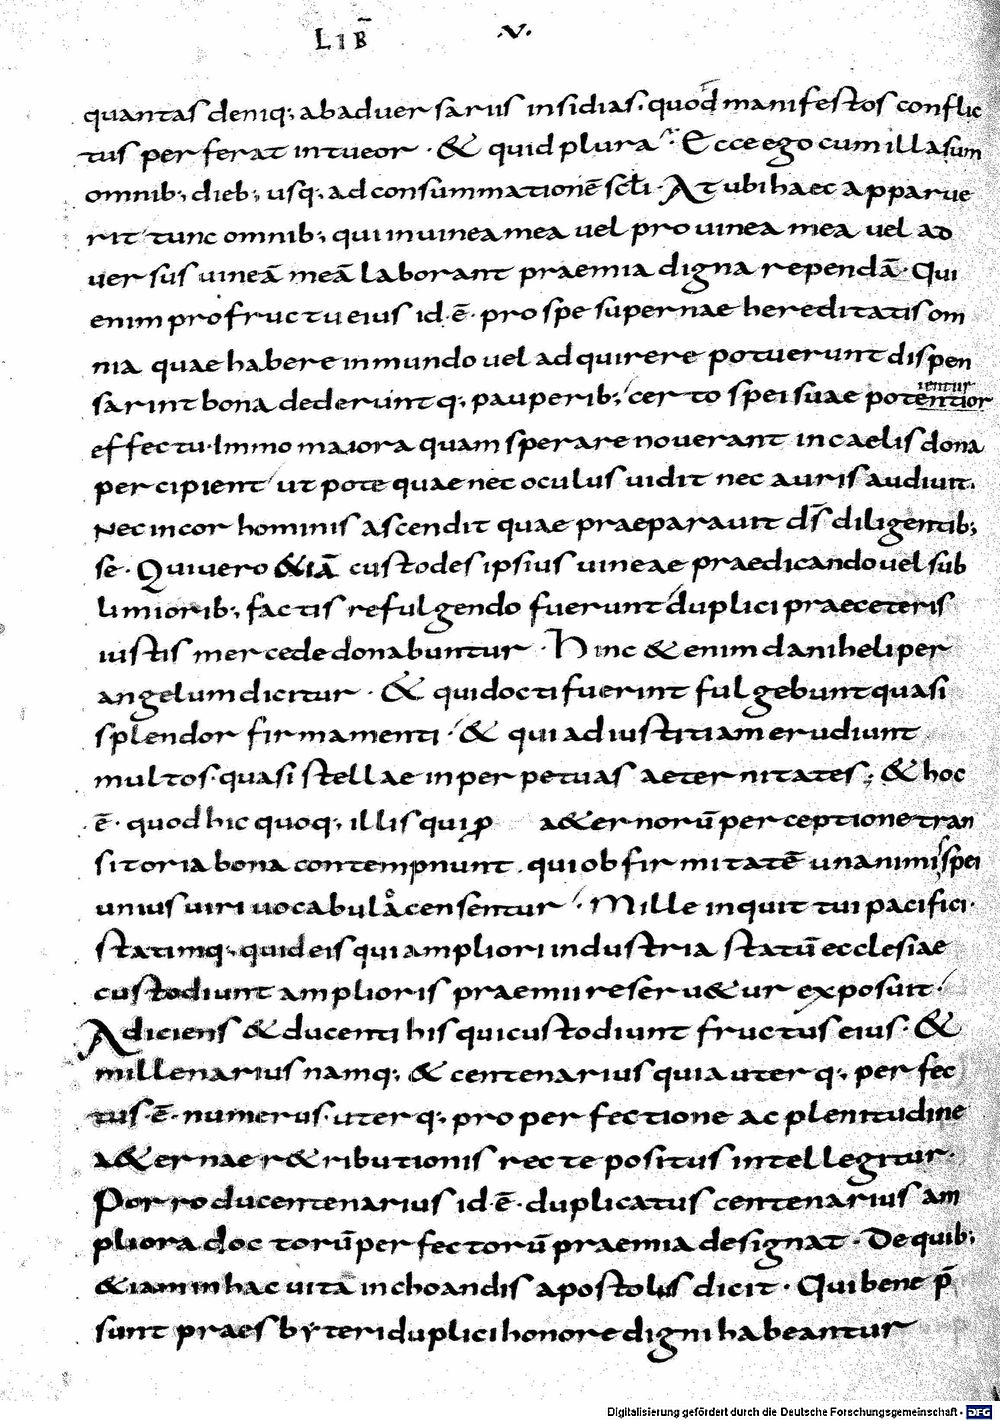 LIB̄ .V.
quantas deniq; ab aduersariis insidias. quod manifestos conflic
tus perferat intueor. & quid plura. Ecce ego cum illa sum
omnib; dieb; usq; ad consummationē scłi. At ubi haec apparue
rit tunc omnib; qui in uinea mea uel pro uinea mea uel ad
uersus uineā meā laborant praemia digna rependā. Qui
enim pro fructu eius id ē. pro spe supernae hereditatis om
nia quae habere in mundo uel adquirere potuerunt dispen
sarint bona dederint q; pauperib; certo spei suae potentior
ientur
effectu. Immo maiora quam sperare nouerant in caelis dona
percipient ut pote quae nec oculus uidit nec auris audiuit.
Nec in cor hominis ascendit quae praeparauit dš diligentib;
se. Qui uero &iā custodes ipsius uineae praedicando uel sub
limiorib; factis refulgendo fuerunt duplici prae ceteris
iustis mercede donabuntur. Hinc & enim daniheli per
angelum dicitur. & qui docti fuerint fulgebunt quasi
splendor firmamenti. & qui ad iustitiam erudiunt
multos. quasi stellae in perpetuas aeternitates; & hoc
ē. quod hic quoq; illis qui ꝓ a&ernorū perceptione tran
sitoria bona contempnunt. qui ob firmitatē unanimis spei
unius uiri uocabula censentur. Mille inquit tui pacifici.
statimq; quid eis qui ampliori industria statū ecclesiae
custodiunt amplioris praemii reseru&ur exposuit.
Adiciens & ducenti his qui custodiunt fructus eius. &
millenarius namq; & centenarius quia uterq; perfec
tus ē. numerus. uterq; pro perfectione ac plenitudine
a&ernae r&ributionis recte positus intellegitur.
Porro ducentenarius id ē. duplicatus centenarius am
pliora doctorū perfectorū praemia designat. De quib;
&iam in hac uita inchoandis apostolus dicit. Qui bene p̄
sunt praesbyteri duplici honore digni habeantur
Digitalisierung gefördert durch die Deutsche Forschungsgemeinschaft - DFG